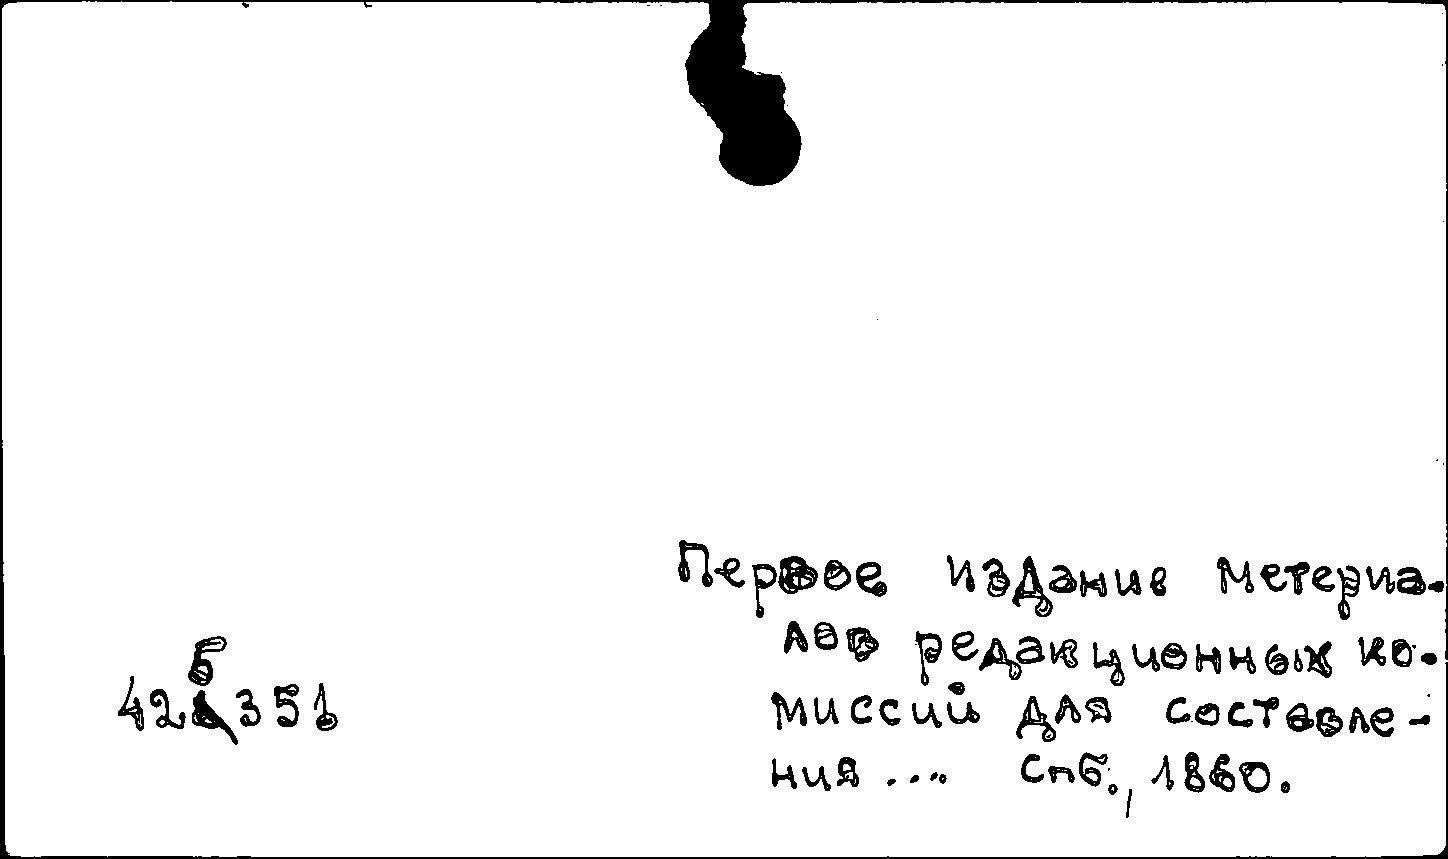 Первое издание метериа-
лов редакционных ко-
миссий для составле-
ния .... Спб., 1860.
5
42 351